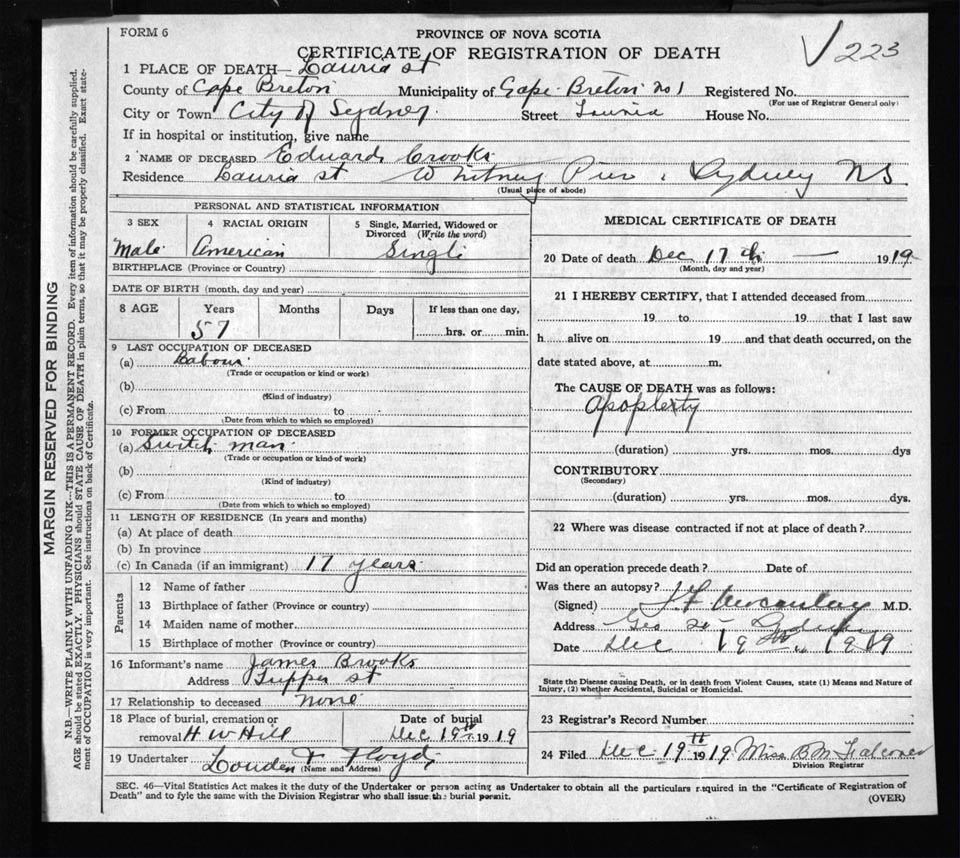 FORM 6
PROVINCE OF NOVA SCOTIA
CERTIFICATE OF REGISTRATION OF DEATH
223
1 PLACE OF DEATH— Lauria st
County of Cape Breton Municipality of Cape Breton No 1 Registered No.
(For use of Registrar General only)
City or Town City of Sydney Street House No.
If in hospital or institution, give name
2 NAME OF DECEASED Eduard Crooks
Residence Lauria st Whitney Pier Sydney NS
(Usual place of abode)
PERSONAL AND STATISTICAL INFORMATION
3 SEX 4 RACIAL ORIGIN 5 Single, Married, Widowed or Divorced (Write the word)
Male American Single
BIRTHPLACE (Province or Country)
DATE OF BIRTH (month, day and year)
8 AGE Years Months Days If less than one day,
57 hrs. or min.
9 LAST OCCUPATION OF DECEASED
(a) Labour
(Trade or occupation or kind or work)
(b)
(Kind of industry)
(c) From to
(Date from which to which so employed)
10 FORMER OCCUPATION OF DECEASED
(a) Switch man
(Trade or occupation or kind of work)
(b)
(Kind of industry)
(c) From to
(Date from which to which so employed)
11 LENGTH OF RESIDENCE (In years and months)
(a) At place of death
(b) In province
(c) In Canada (if an immigrant) 17 years
Parents
12 Name of father
13 Birthplace of father (Province or country)
14 Maiden name of mother
15 Birthplace of mother (Province or country)
16 Informant's name James Brooks
Address Tupper st
17 Relationship to deceased none
18 Place of burial, cremation or removal H W Hill
Date of burial
Dec 19th 1919
19 Undertaker Louden & Floyd
(Name and Address)
MEDICAL CERTIFICATE OF DEATH
20 Date of death Dec 17th — 1919
(Month, day and year)
21 I HEREBY CERTIFY, that I attended deceased from
19 to 19 that I last saw
h alive on 19 and that death occurred, on the
date stated above, at m.
The CAUSE OF DEATH was as follows:
Apoplexty
(duration) yrs. mos. dys
CONTRIBUTORY
(Secondary)
(duration) yrs. mos. dys.
22 Where was disease contracted if not at place of death?
Did an operation precede death? Date of
Was there an autopsy?
(Signed) M.D.
Address Geo Sydney
Date Dec 19th 1919
State the Disease causing Death, or in death from Violent Causes, state (1) Means and Nature of
Injury, (2) whether Accidental, Suicidal or Homicidal.
23 Registrar's Record Number
24 Filed Dec 19th 1919 Miss B M Falconer
Division Registrar
SEC. 46—Vital Statistics Act makes it the duty of the Undertaker or person acting as Undertaker to obtain all the particulars required in the "Certificate of Registration of
Death" and to fyle the same with the Division Registrar who shall issue the burial permit.
(OVER)
MARGIN RESERVED FOR BINDING
N.B.—WRITE PLAINLY WITH UNFADING INK—THIS IS A PERMANENT RECORD. Every item of information should be carefully supplied.
AGE should be stated EXACTLY. PHYSICIANS should STATE CAUSE OF DEATH in plain terms, so that it may be properly classified. Exact state-
ment of OCCUPATION is very important. See instructions on back of Certificate.